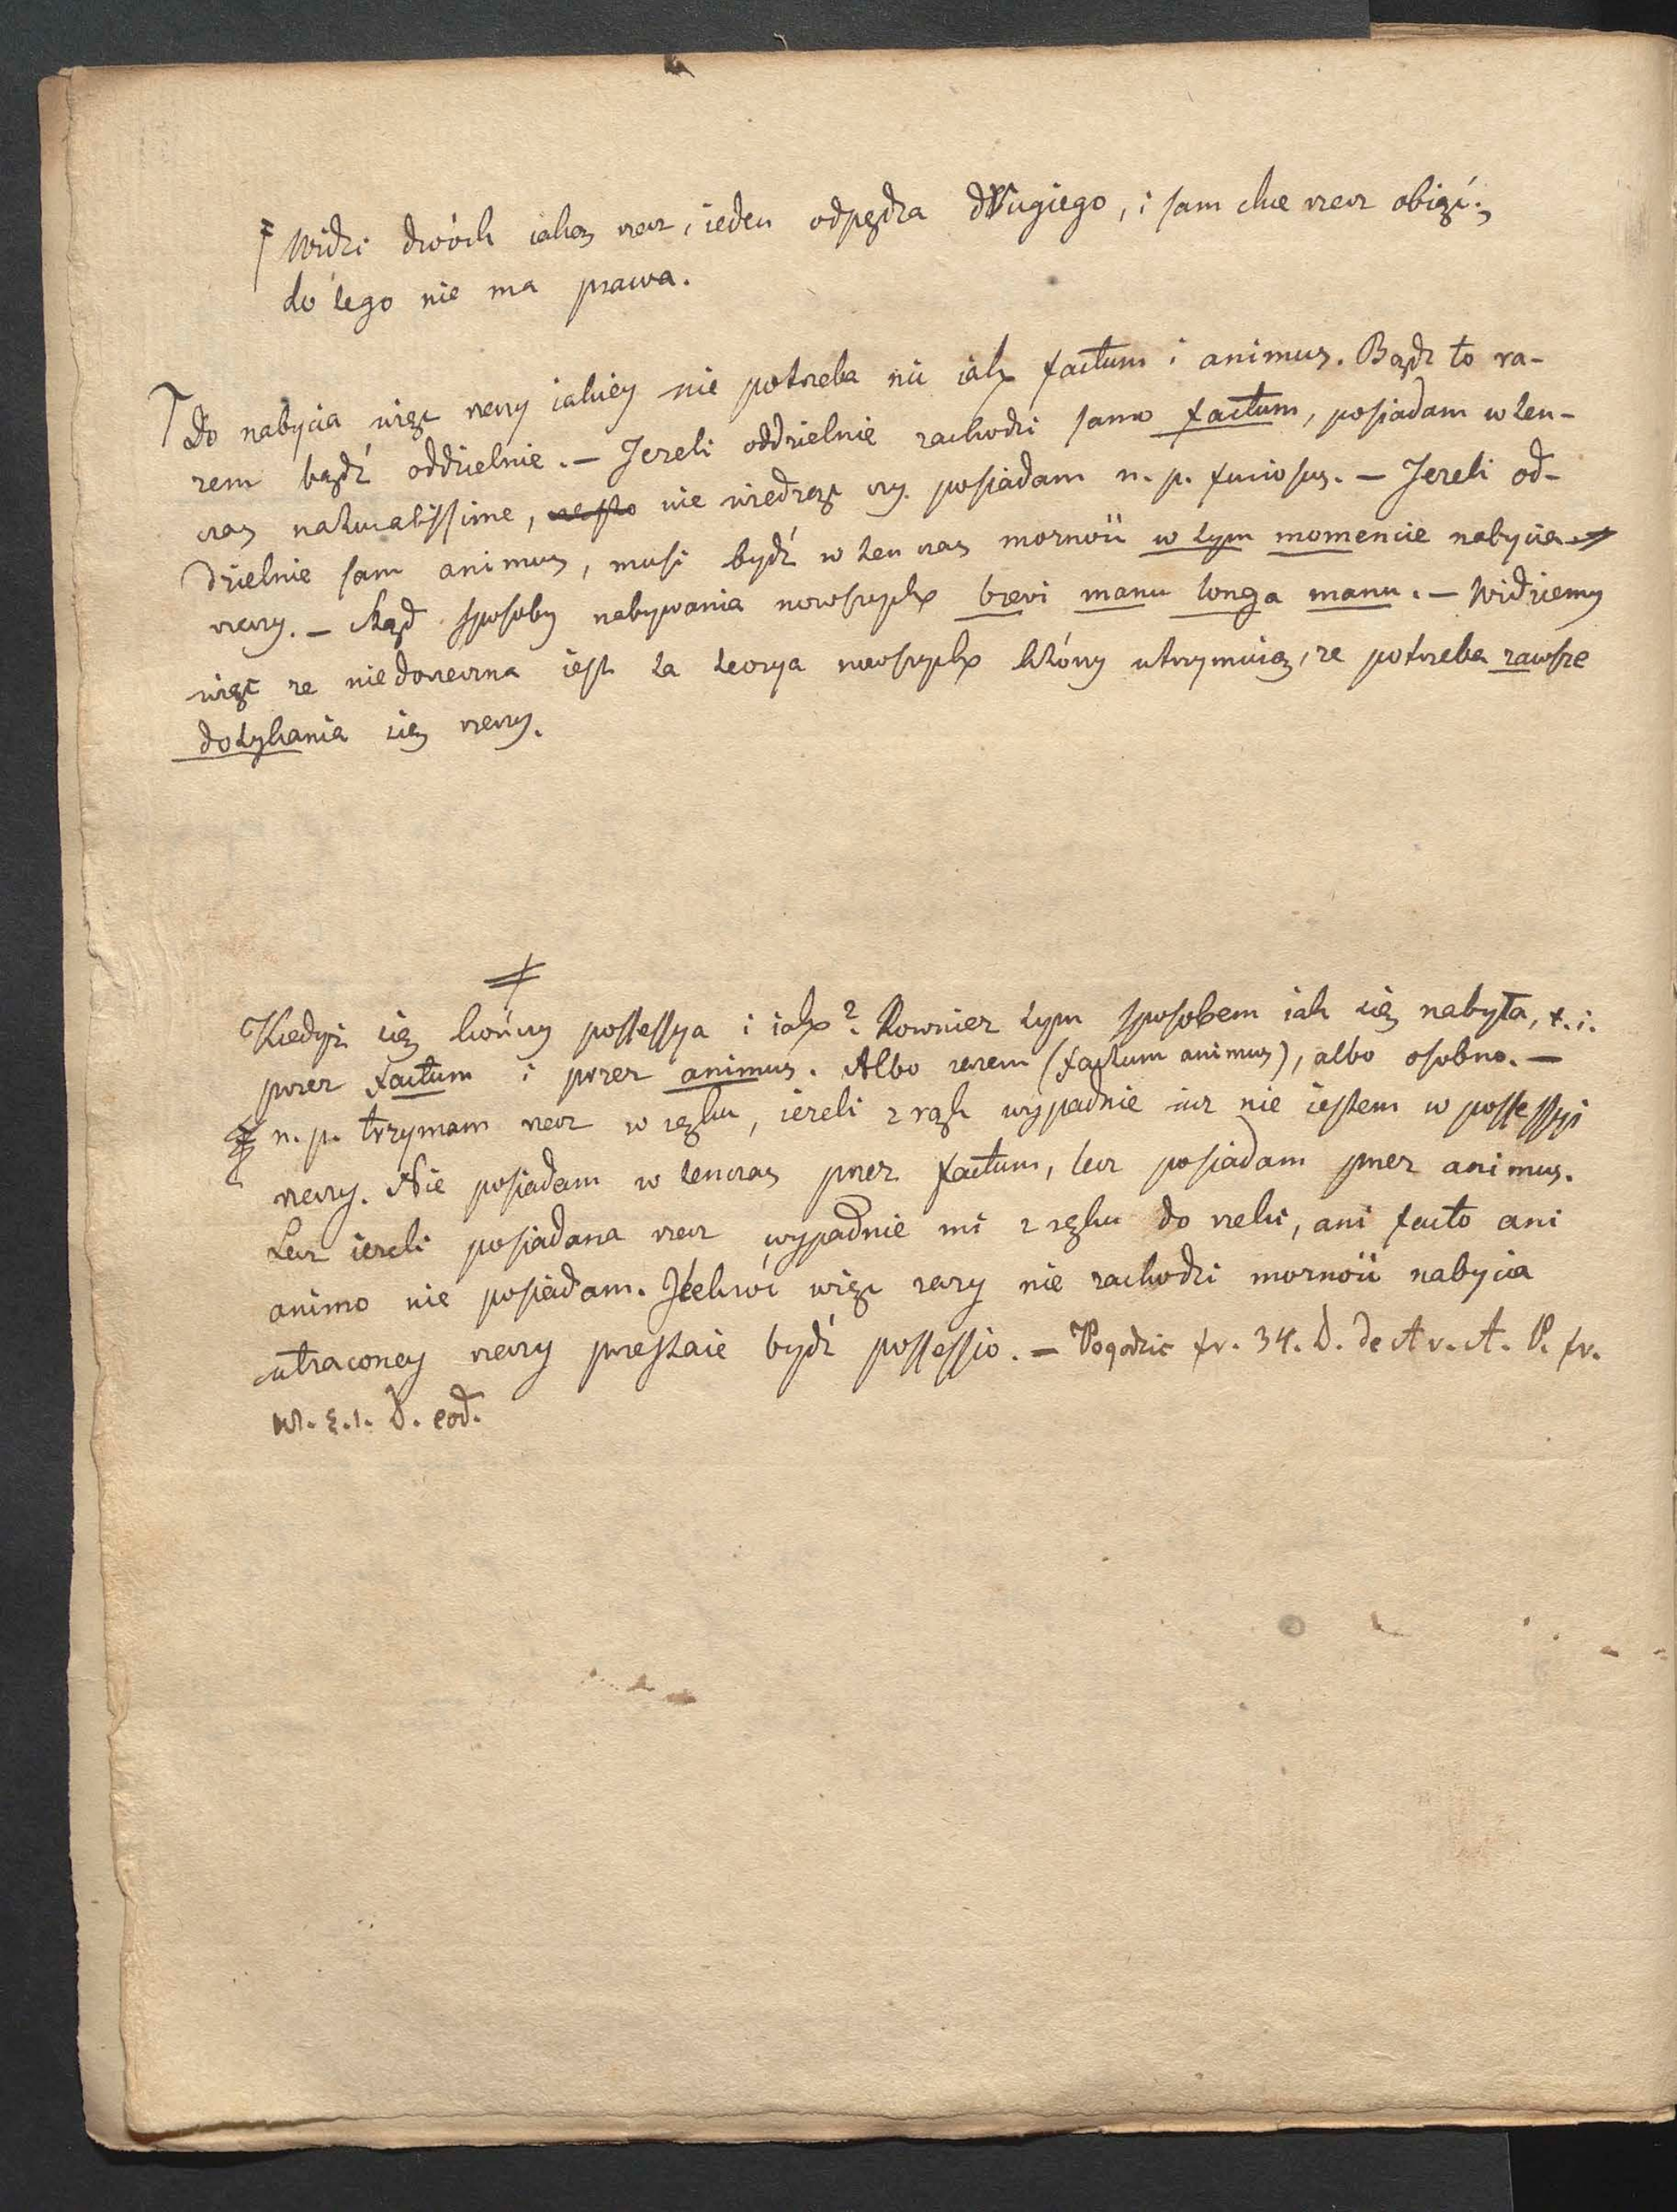 Widzi dwóch iakąś rzecz, ieden odpędza drugiego, i sam chce rzecz obiąć;
do tego nie ma prawa.
Do nabycia więc rzeczy iakiey nie potrzeba nic iak factum i animus. Bądź to ra-
zem bądź oddzielnie. — Jeżeli oddzielnie zachodzi samo factum, posiadam w ten-
czas naturalissime, nie wiedząc czy posiadam n. p. furiosus. — Jeżeli od-
dzielnie sam animus, musi bydź w ten czas możność w tym momencie nabycia
rzeczy. — Skąd sposoby nabywania nowszych brevi manu longa manu. — Widziemy
więc że niedorzeczna iest ta teorya nowszych którzy utrzymuią, że potrzeba zawsze
dotykania się rzeczy.
Kiedyż się kończy possessya i iak? Rownież tym sposobem iak się nabyła, t. i.
przez factum i przez animus. Albo razem (factum animus), albo osobno. —
n. p. trzymam rzecz w ręku, ieżeli z rąk wypadnie iuż nie iestem w possessyi
rzeczy. Nie posiadam w tenczas przez factum, lecz posiadam przez animus.
Lecz ieżeli posiadana rzecz wypadnie mi z ręku do rzeki, ani facto ani
animo nie posiadam. Jeekroć więc razy nie zachodzi możność nabycia
utraconey rzeczy przestaie bydź possessio. — Pogodzić fr. 34. D. de A v. A. P. fr.
§. 1. D. eod.